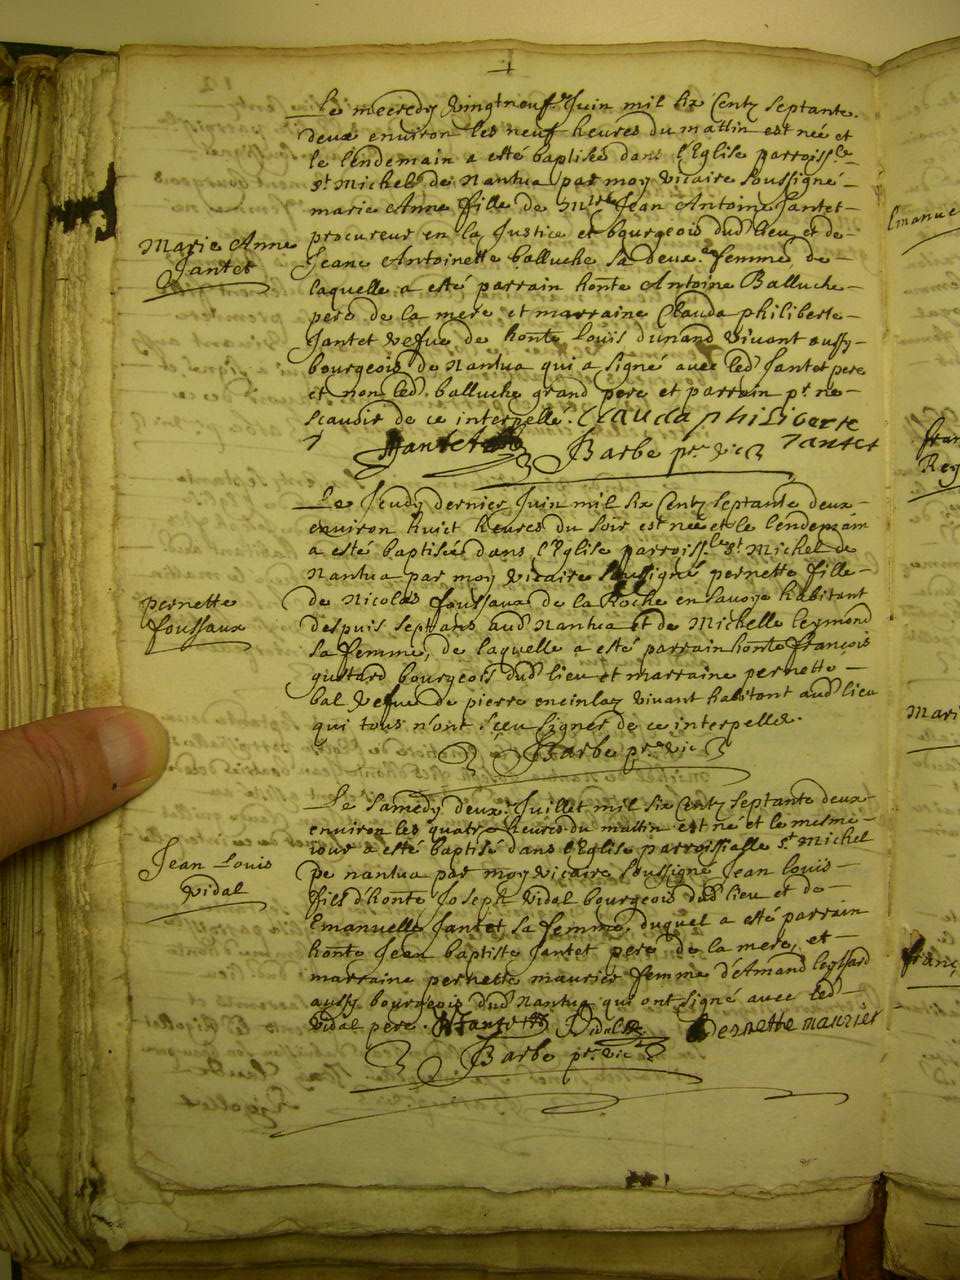 Le mecredy vingtneuf.e Juin mil six Centz septante
deux environ les neuf heures du mattin est née et
le lendemain a esté baptisée dans l'Eglise parroiss.le
st Michel de Nantua par moy vicaire soussigné
Marie Anne Jantet
marie Anne fille de M.re Jean Antoine Jantet
procureur en la Justice et bourgeois dud. lieu et de
Jeane Antoinette balluche sa deux.e femme de
laquelle a esté parrain honte Antoine Balluche
pere de la mere et marraine Clauda philiberte
Jantet vefue de honte Louis dunand vivant aussy
bourgeois de Nantua qui a signé avec led. Jantet pere
et non led. balluche grand pere et parrain pr. ne
scavoir de ce interpellé. Clauda philiberte
Jantet Barbe pr. vic. Jantet
Le Jeudy dernier Juin mil six Centz septante deux
environ huict heures du soir est née et le lendemain
a esté baptisée dans l'Eglise parroiss.le st Michel de
Nantua par moy vicaire soussigné pernette fille
pernette
foussaux
de Nicolas foussaux de la Roche en savoye habitant
despuis sept ans aud. Nantua et de Michelle leymond
sa femme, de laquelle a esté parrain honte françois
guitard bourgeois dud. lieu et marraine pernette
bal vefue de pierre vivant habitant aud. lieu
qui tous n'ont sçeu signer de ce interpelles.
Barbe pr. vic.
Le samedy deux.e Juillet mil six Centz septante deux
environ les quatre heures du mattin est né et le mesme
iour a esté baptisé dans l'Eglise parroissialle st Michel
Jean Louis
Vidal
De nantua par moy vicaire soussigné Jean louis
fils d'honte Joseph Vidal bourgeois dud. lieu et de
Emanuelle Jantet sa femme, duquel a esté parrain
honte Jean baptiste Jantet pere de la mere, et
marraine pernette maurier femme d'Amand leyssard
aussy bourgeois dud. Nantua qui ont signé avec led.
Vidal pere. Jantet Vidal Pernette maurier
Barbe pr. vic.